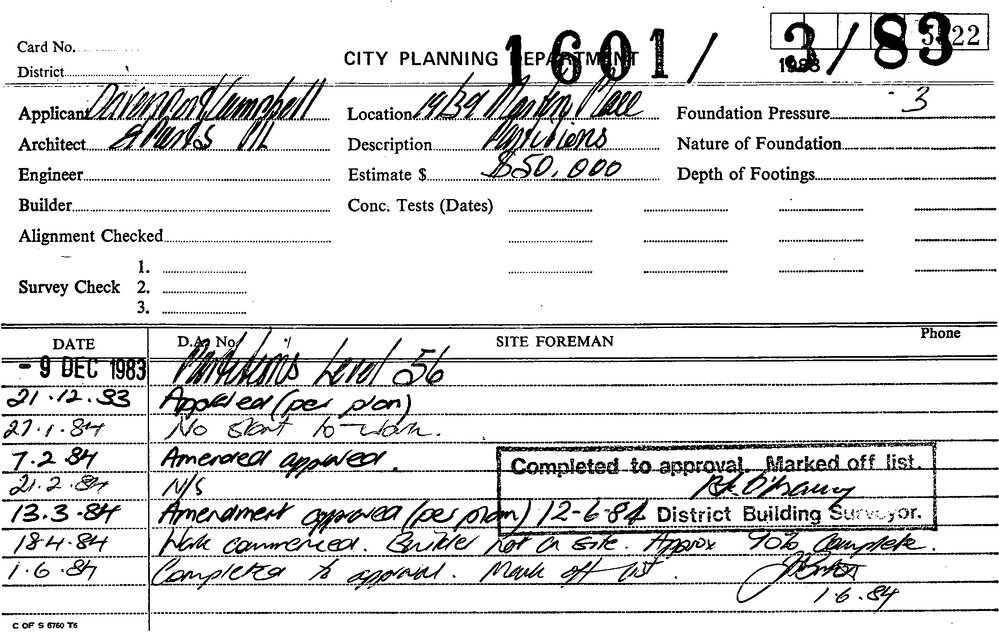 Card No.
CITY PLANNING DEPARTMENT
1601/3/83
1983 5522
District
Applicant Davenport Campbell Location 19/39 Martin Place Foundation Pressure 3
Architect & Ptnrs P/L Description Partitions Nature of Foundation
Engineer Estimate $ $50,000 Depth of Footings
Builder Conc. Tests (Dates)
Alignment Checked
1.
Survey Check 2.
3.
DATE D.A. No. SITE FOREMAN Phone
- 9 DEC 1983 Partitions Level 56
21.12.83 Approved (per plan)
27.1.84 No start to work.
7.2.84 Amended approved.
Completed to approval. Marked off list.
21.2.84 N/S
13.3.84 Amendment approved (per plan) 12-6-84 District Building Surveyor.
18.4.84 Work commenced. Builder not on site. Approx 90% complete.
1.6.84 Completed to approval. Mark off list.
1.6.84
C OF S 6760 T6